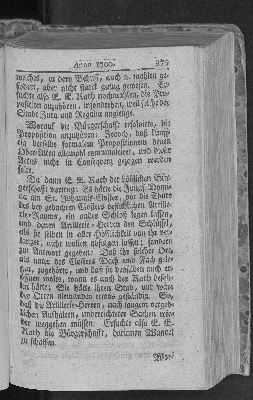 Anno 1700. 373
welches, zu dero Behuff, auch 2. mahlen ge-
fodert, aber nicht starck genug gewesen. Er-
suchte also E. E. Rath nochmahlen, die Pro-
position anzuhören, insonderheit, weil solche der
Stadt Jura und Regalia angienge.
Worauf die Bürgerschafft resolvirte, die
Proposition anzuhören: Jedoch, daß künff-
tig derselben formalem Propositionem denen
Ober-Alten allemahl communiciret, und dieser
Actus nicht in Consequenz gezogen werden
solte.
Da dann E. E. Rath der löblichen Bür-
gerschafft vortrug: Es hätte die Jungf. Domi-
na am St. Johannis-Closter, vor die Thüre
des bey gedachten Closters befindlichen Artille-
rie-Raums, ein ander Schloß legen lassen,
und denen Artillerie-Herren den Schlüssel,
als sie selben in aller Höfflichkeit von ihr ver-
langet, nicht wollen abfolgen lassen; sondern
zur Antwort gegeben: Daß ihr solcher Ort,
als unter des Closters Dach und Fach gele-
gen, zugehörte, und daß sie denselben nicht ab-
folgen wolte, wann es auch der Rath befoh-
len hätte: Sie hätte ihren Eyd, und wäre
der Orten niemanden etwas geständig. So,
daß die Artillerie-Herren, nach langem vergeb-
lichen Auffhalten, unverrichteter Sachen wie-
der weggehen müssen. Ersuchte also E. E.
Rath die Bürgerschafft, darinnen Wandel
zu schaffen.